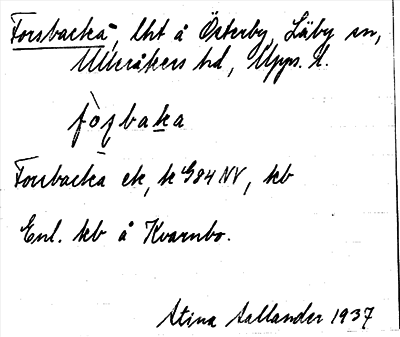 Forsbacka, lht å Österby, Läby sn,
Ulleråkers hd, Upps. l.
fòʂbaka
Forsbacka ek, k G84 NV, kb
Enl. kb å Kvarnbo.
Stina Sallander 1937